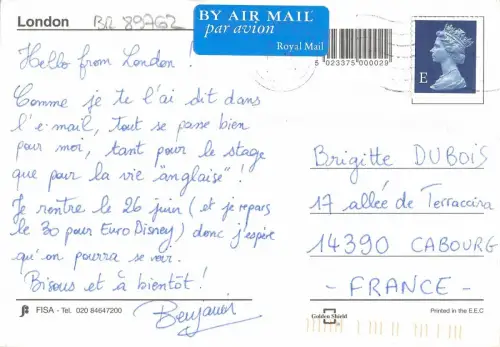 London
BR 89762
BY AIR MAIL
par avion
Royal Mail
5 023375 000029
E
Hello from London !
Comme je te l'ai dit dans
l'e-mail, tout se passe bien
pour moi, tant pour le stage
que pour la vie "anglaise" !
Je rentre le 26 juin (et je repars
le 30 pour Euro Disney) donc j'espère
qu'on pourra se voir.
Bisous et à bientôt !
Benjamin
Brigitte DUBOIS
17 allée de Terraccina
14390 CABOURG
- FRANCE -
FISA - Tel. 020 84647200
Golden Shield
Printed in the E.E.C